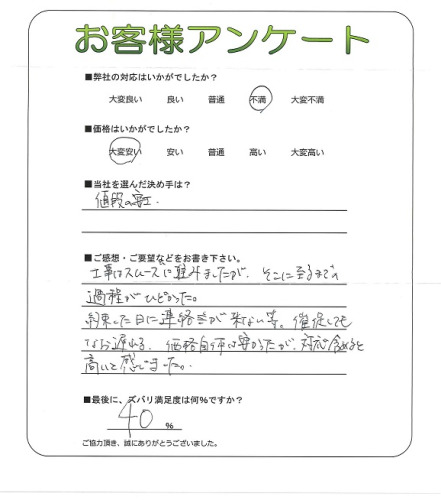 お客様アンケート
■弊社の対応はいかがでしたか？
大変良い 良い 普通 不満 大変不満
■価格はいかがでしたか？
大変安い 安い 普通 高い 大変高い
■当社を選んだ決め手は？
値段の安さ.
■ご感想・ご要望などをお書き下さい。
工事はスムーズに進みましたが、そこに至るまでの
過程がひどかった。
約束した日に連絡が来ない等。催促しても
なお遅れる。価格自体は安かったが、対応含めると
高いと感じました。
■最後に、ズバリ満足度は何％ですか？
40 %
ご協力頂き、誠にありがとうございました。